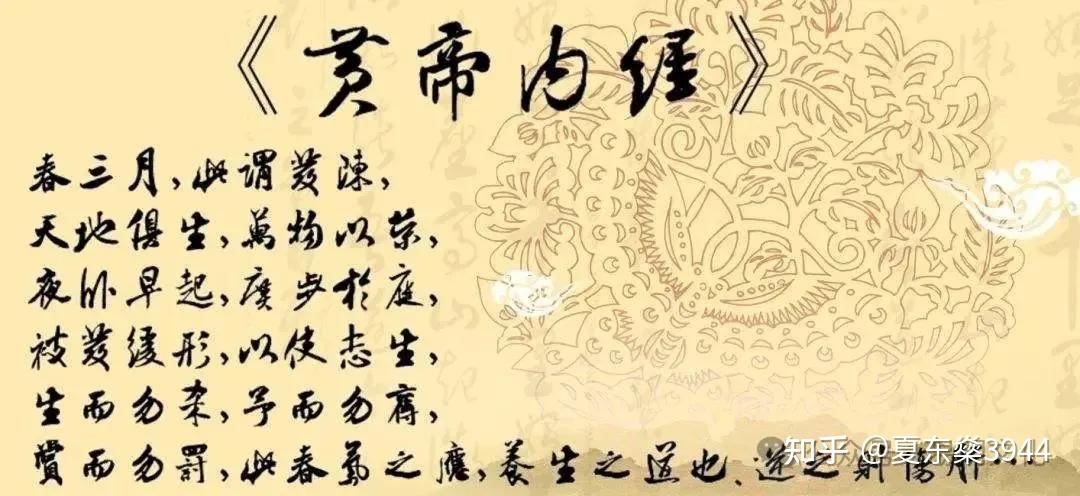 《黄帝内經》
春三月,此謂發陳,
天地俱生,萬物以榮,
夜卧早起,廣步於庭,
被發緩形,以使志生,
生而勿杀,予而勿奪,
賞而勿罰,此春氣之應,養生之道也、逆之則傷肝...
知乎 @夏东燊3944